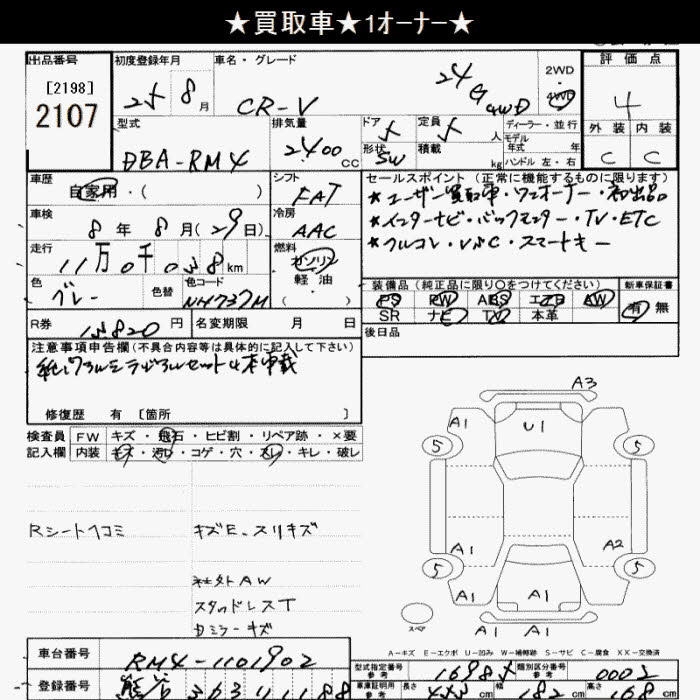 ★買取車★1オーナー★
出品番号
[2198]
2107
初度登録年月
25 8月
車名・グレード
CR-V
24G 4WD
2WD
・
4WD
評価点
4
外装 内装
C C
型式
DBA-RM4
排気量
2400 CC
ドア 5
形状 SW
定員 5人
積載 kg
ディーラー・並行
モデル年式 年
ハンドル 左・右
車歴
自家用・( )
シフト
FAT
車検
8年 8月(29日)
冷房
AAC
走行
11万0千038km
燃料
ガソリン
軽油
( )
色
グレー
色替
色コード
NH737M
セールスポイント (正常に機能するものに限ります)
★ユーザー買取車・ワンオーナー・初出品
★インターナビ・バックモニター・TV・ETC
★フルコレ・VSC・スマートキー
装備品 (純正品に限り○をつけてください)
PS PW ABS エアB AW
SR ナビ TV 本革
新車保証書
有 無
後日品
R券
15,820円
名変期限 月 日
注意事項申告欄 (不具合内容等は具体的に記入して下さい)
純正アルミラジアルセット4本車載
修復歴 有 〔箇所 〕
検査員記入欄
FW キズ・飛石・ヒビ割・リペア跡・×要
内装 キズ・汚れ・コゲ・穴・スレ・キレ・破レ
Rシートヘコミ
キズE、スリキズ
社外AW
スタッドレスT
Dミラーキズ
A3
A1
U1
A1
5
5
A1
A2
5
5
A1
A1
A1
スペア
A1 A1
A-キズ E-エクボ U-凹み W-補修跡 S-サビ C-腐食 XX-交換済
車台番号
RM4-1101902
登録番号
型式指定番号
参考
16985
類別区分番号
参考
0002
車庫証明用
参考
長さ
cm
幅
182 cm
高さ
168 cm